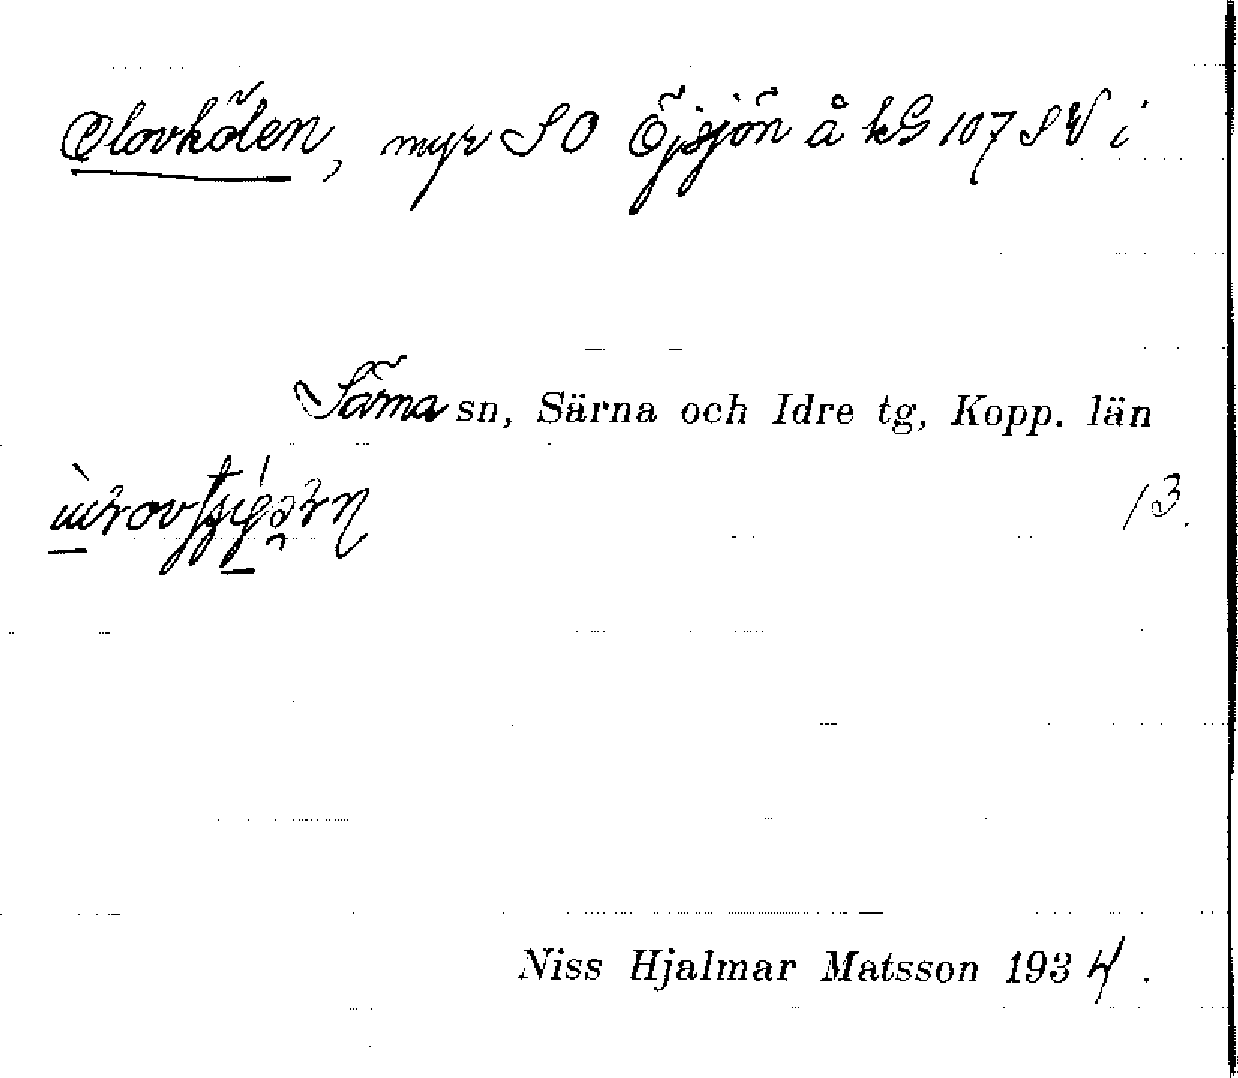 Olovkölen, myr SO Öjsjön å kG 107 SV i
Särna sn, Särna och Idre tg, Kopp. län
13.
Niss Hjalmar Matsson 1934.